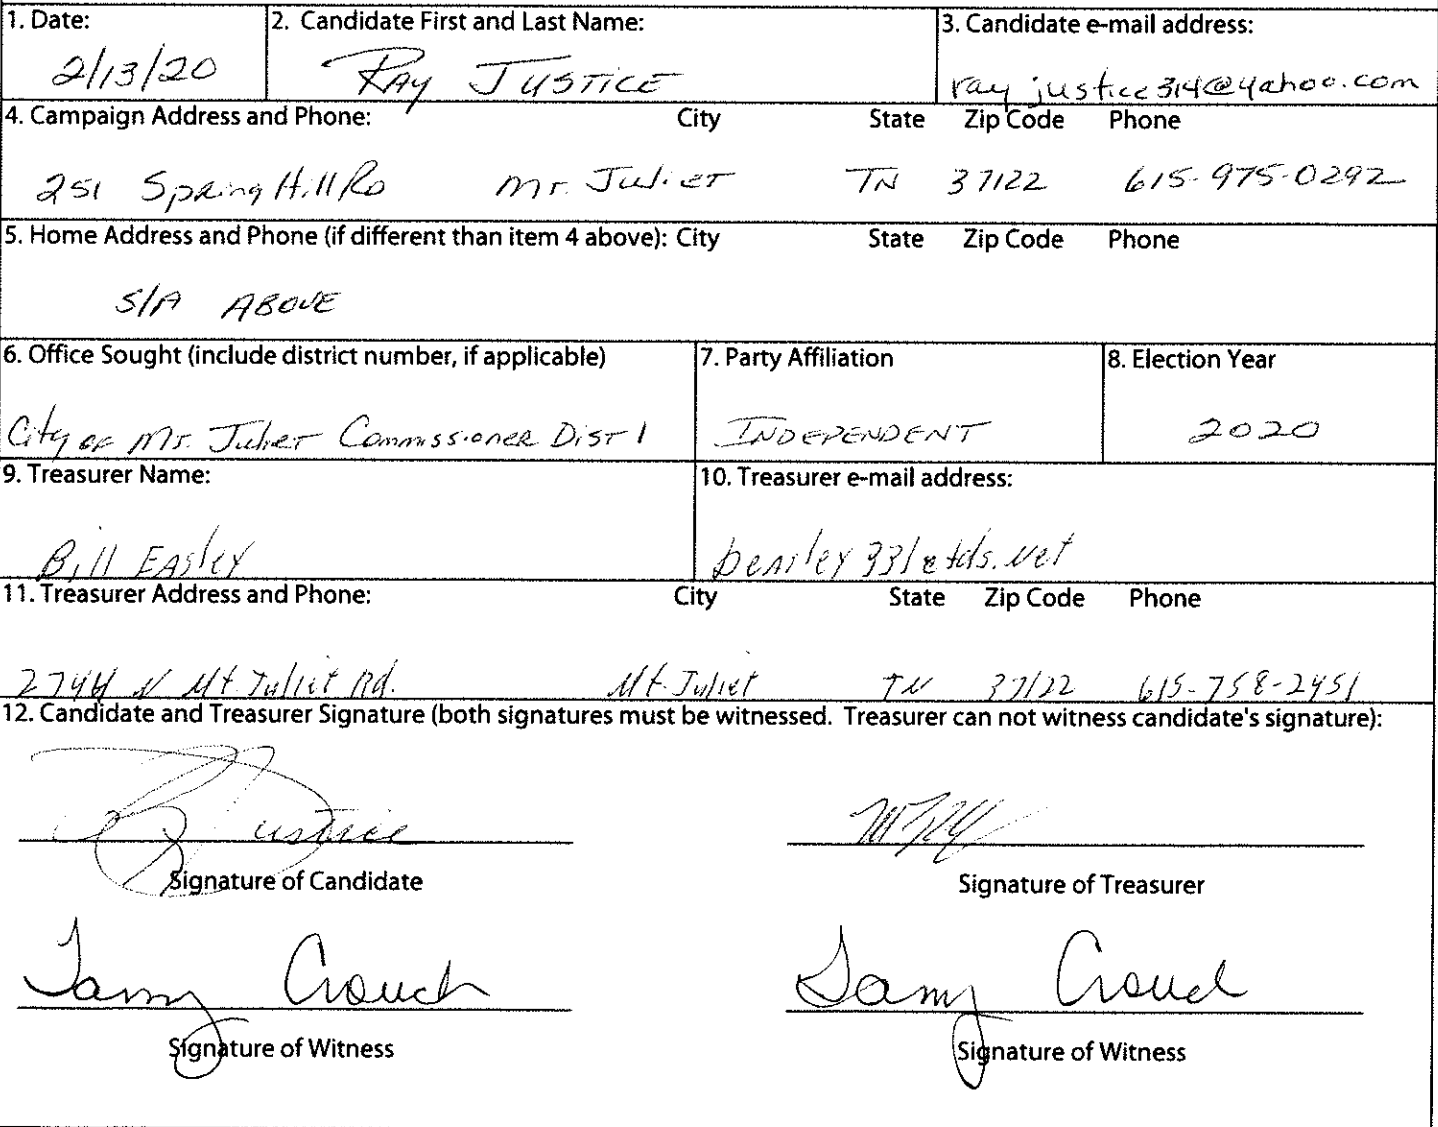 1. Date: 2. Candidate First and Last Name: 3. Candidate e-mail address:
2/13/20 RAY JUSTICE rayjustice314@yahoo.com
4. Campaign Address and Phone: City State Zip Code Phone
251 Spring Hill RD MT. JULIET TN 37122 615-975-0292
5. Home Address and Phone (if different than item 4 above): City State Zip Code Phone
S/A ABOVE
6. Office Sought (include district number, if applicable) 7. Party Affiliation 8. Election Year
City of MT. JULIET Commissioner DIST 1 INDEPENDENT 2020
9. Treasurer Name: 10. Treasurer e-mail address:
Bill EASLEY beasley331@tds.net
11. Treasurer Address and Phone: City State Zip Code Phone
2744 N Mt. Juliet Rd. Mt. Juliet TN 37122 615-758-2451
12. Candidate and Treasurer Signature (both signatures must be witnessed. Treasurer can not witness candidate's signature):
Justice
Signature of Candidate Signature of Treasurer
Tammy Crouch Tammy Crouch
Signature of Witness Signature of Witness